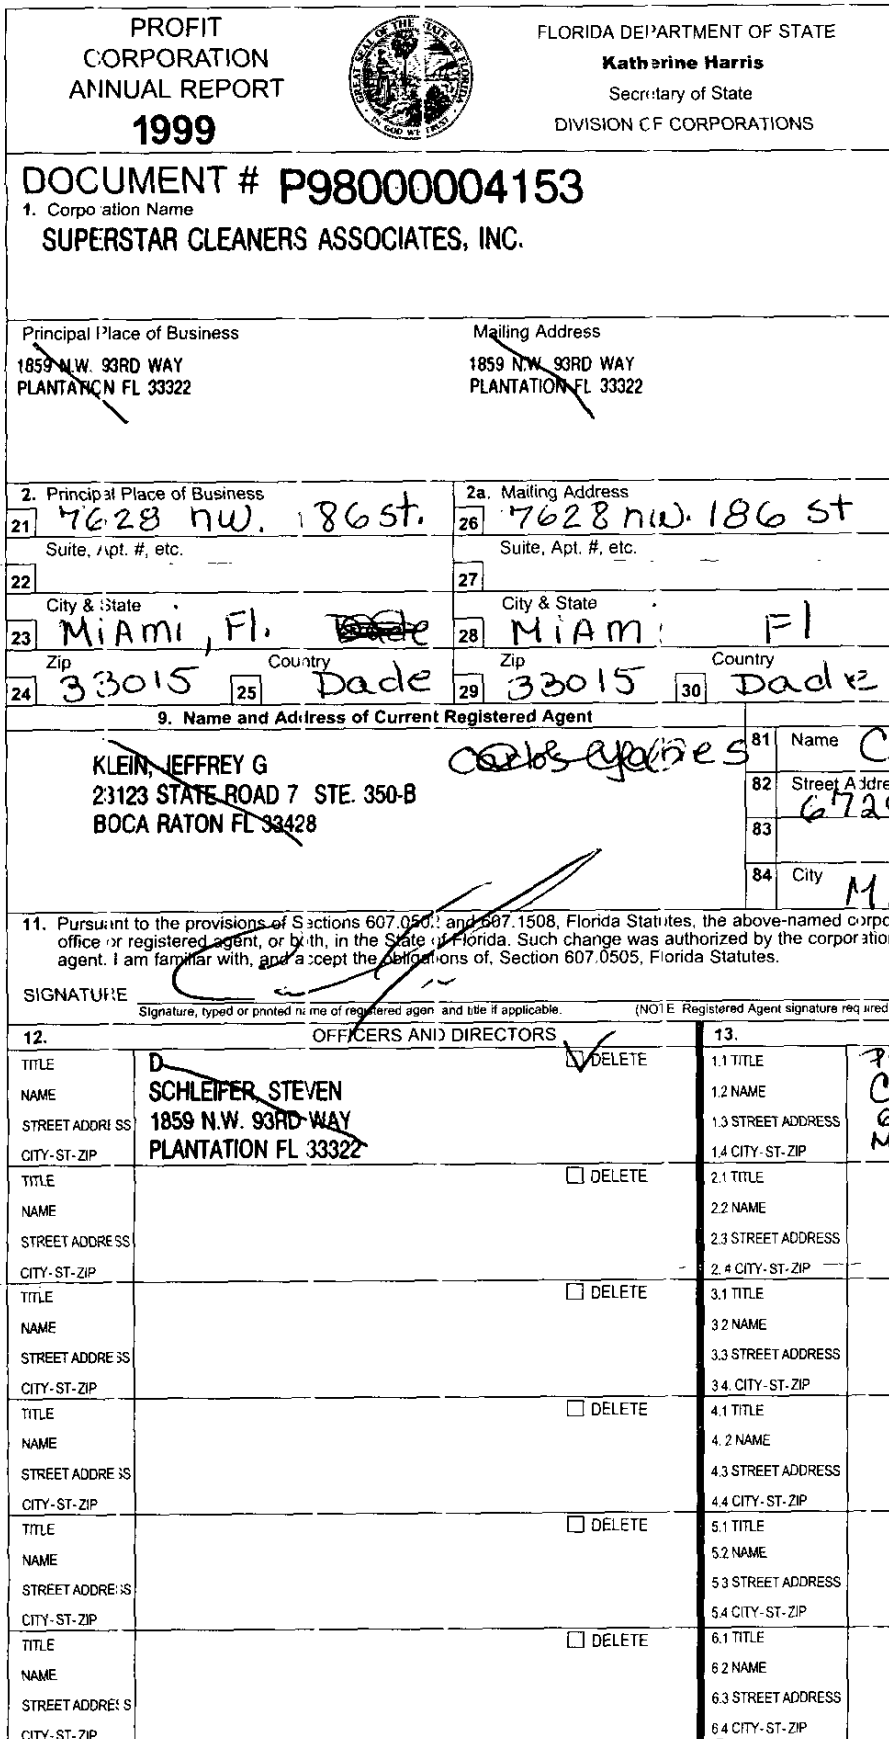 PROFIT
CORPORATION
ANNUAL REPORT
1999
GREAT SEAL OF THE STATE OF FLORIDA
IN GOD WE TRUST
FLORIDA DEPARTMENT OF STATE
Katherine Harris
Secretary of State
DIVISION OF CORPORATIONS
DOCUMENT # P98000004153
1. Corporation Name
SUPERSTAR CLEANERS ASSOCIATES, INC.
Principal Place of Business
1859 N.W. 93RD WAY
PLANTATION FL 33322
Mailing Address
1859 N.W. 93RD WAY
PLANTATION FL 33322
2. Principal Place of Business
21 7628 nw. 186 st.
Suite, Apt. #, etc.
22
City & State
23 MiAmi, Fl.
Zip
24 33015
Country
25 Dade
2a. Mailing Address
26 7628 nw. 186 st
Suite, Apt. #, etc.
27
City & State
28 MiAmi Fl
Zip
29 33015
Country
30 Dade
9. Name and Address of Current Registered Agent
KLEIN, JEFFREY G
23123 STATE ROAD 7 STE. 350-B
BOCA RATON FL 33428
81 Name C
82 Street Addre
672
83
84 City M
11. Pursuant to the provisions of Sections 607.0502 and 607.1508, Florida Statutes, the above-named corpo
office or registered agent, or both, in the State of Florida. Such change was authorized by the corporatio
agent. I am familiar with, and accept the obligations of, Section 607.0505, Florida Statutes.
SIGNATURE
Signature, typed or printed name of registered agent and title if applicable. (NOTE Registered Agent signature required
12. OFFICERS AND DIRECTORS 13.
TITLE D DELETE 1.1 TITLE P
NAME SCHLEIFER, STEVEN 1.2 NAME C
STREET ADDRESS 1859 N.W. 93RD WAY 1.3 STREET ADDRESS 6
CITY-ST-ZIP PLANTATION FL 33322 1.4 CITY-ST-ZIP M
TITLE DELETE 2.1 TITLE
NAME 2.2 NAME
STREET ADDRESS 2.3 STREET ADDRESS
CITY-ST-ZIP 2.4 CITY-ST-ZIP
TITLE DELETE 3.1 TITLE
NAME 3 2 NAME
STREET ADDRESS 3.3 STREET ADDRESS
CITY-ST-ZIP 3 4. CITY-ST-ZIP
TITLE DELETE 4.1 TITLE
NAME 4. 2 NAME
STREET ADDRESS 4.3 STREET ADDRESS
CITY-ST-ZIP 4.4 CITY-ST-ZIP
TITLE DELETE 5.1 TITLE
NAME 5.2 NAME
STREET ADDRESS 5 3 STREET ADDRESS
CITY-ST-ZIP 5.4 CITY-ST-ZIP
TITLE DELETE 6.1 TITLE
NAME 6 2 NAME
STREET ADDRESS 6.3 STREET ADDRESS
CITY-ST-ZIP 6 4 CITY-ST-ZIP